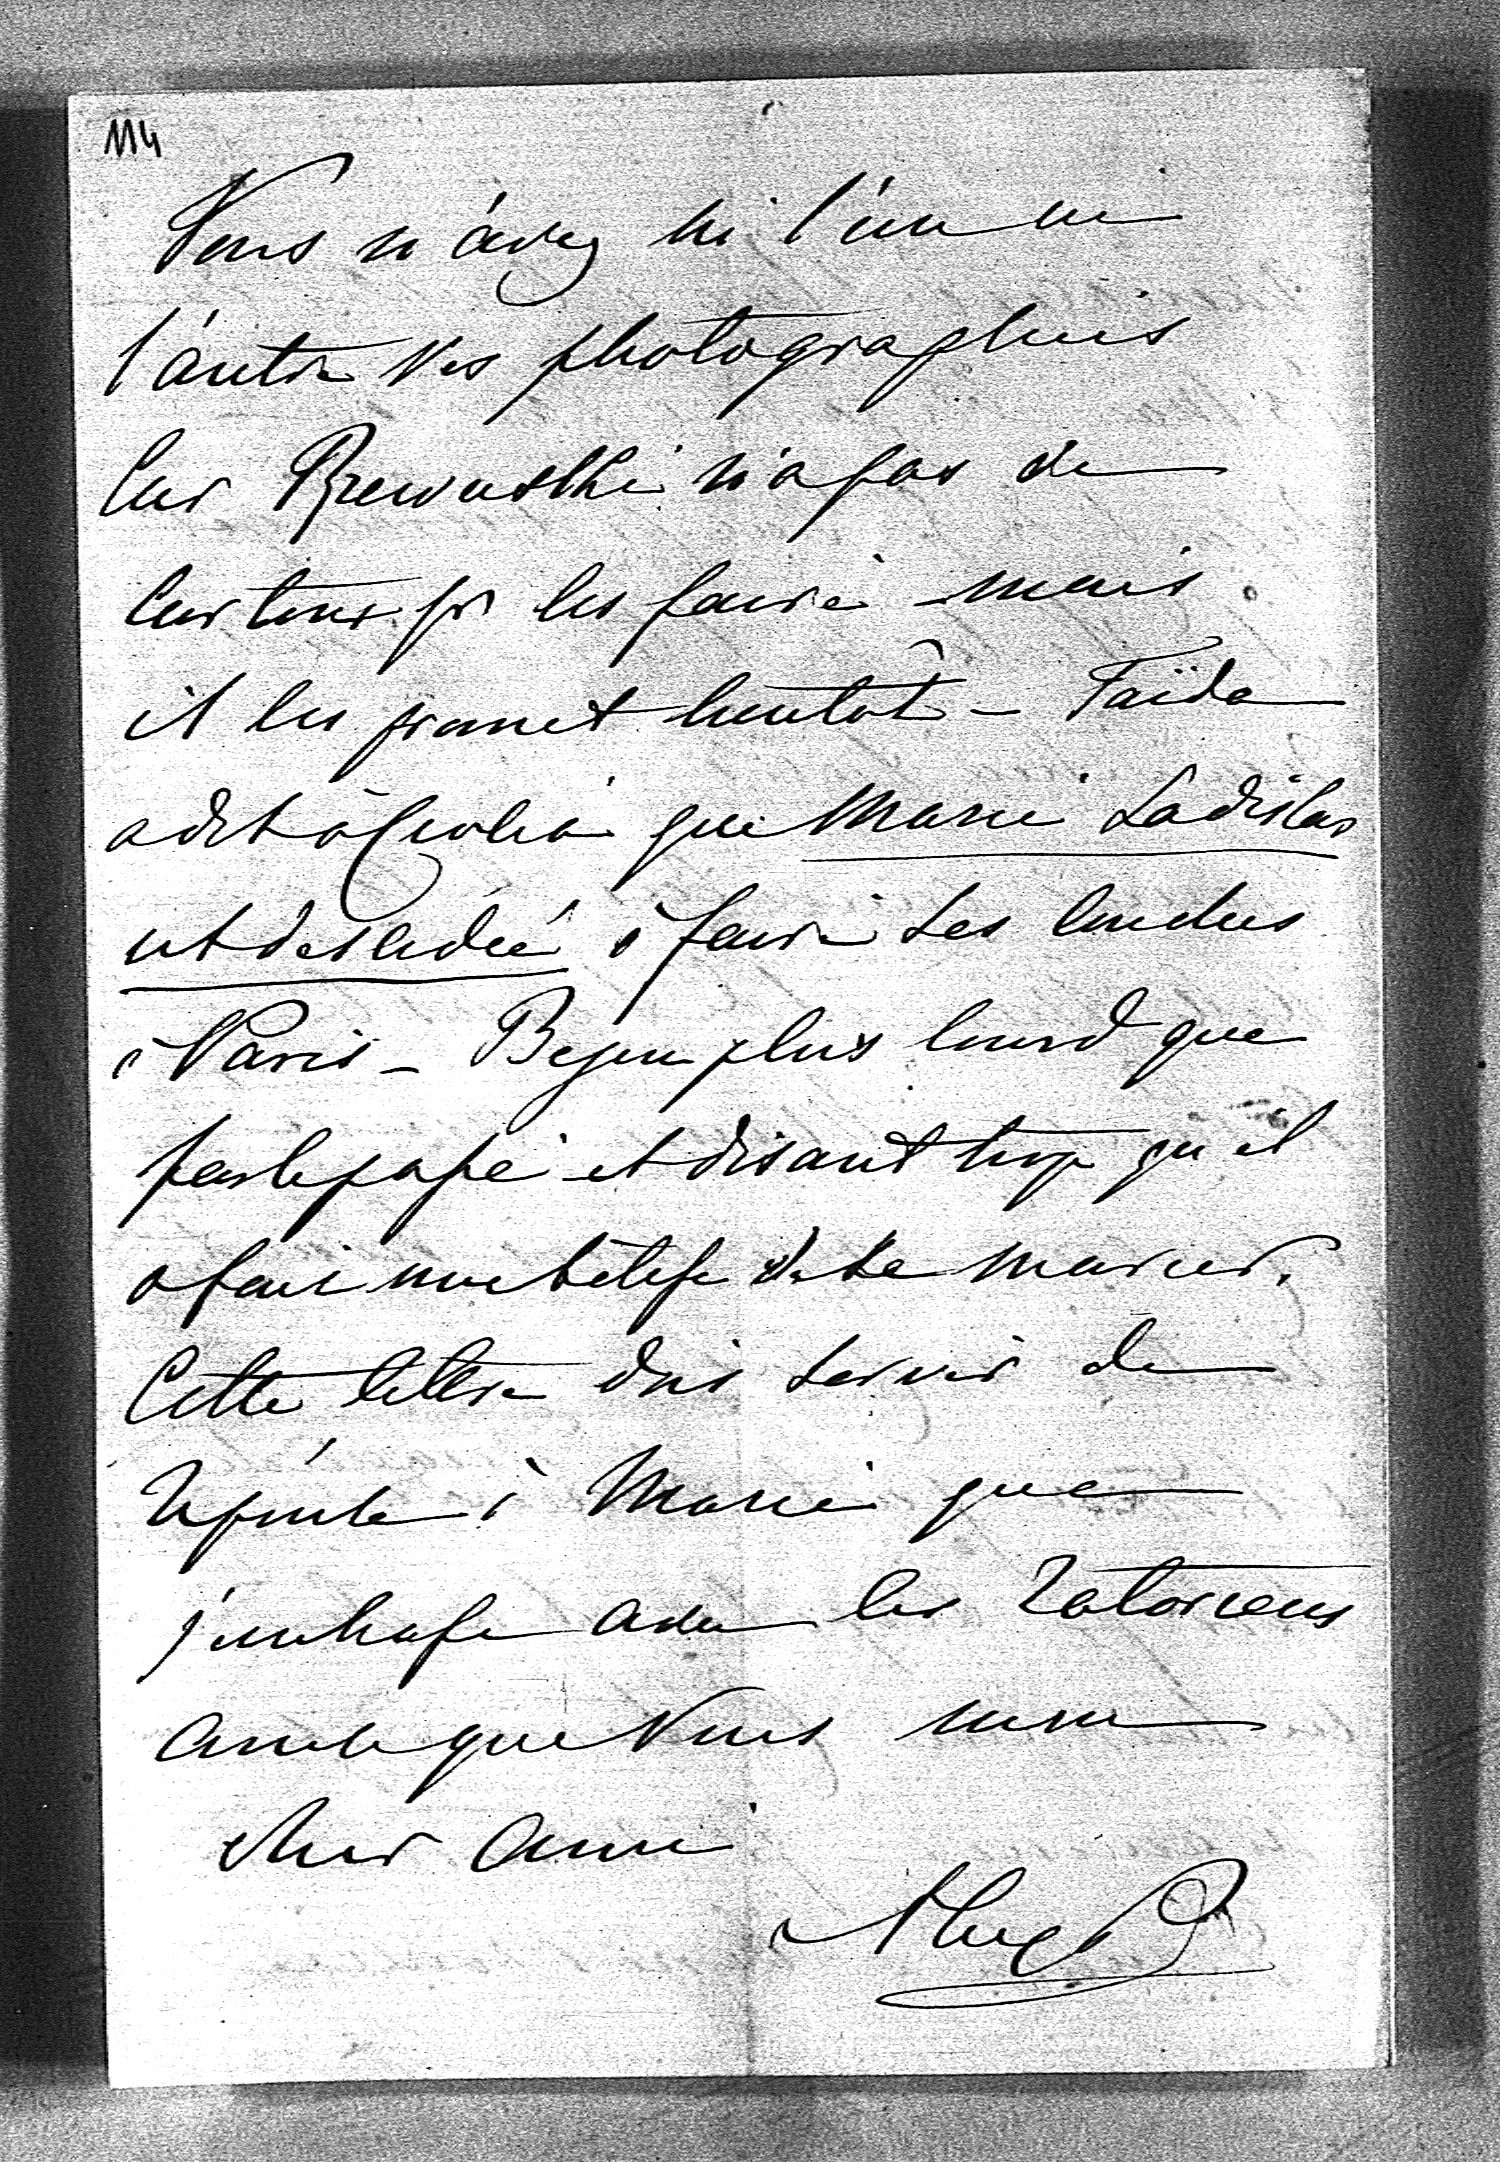 114
Vous n'avez ni l'un ni
l'autre vos photographies
Car Rzewuski n'a pas de
cartons pr les faire mais
il les promet bientôt – Taïda
a dit à que Marie Ladislas
est décidée à faire ses couches
à Paris – plus lourd que
et disant trop qu'il
a fait une bêtise de se marier.
Cette lettre doit servir de
réponse à Marie que
j'embrasse avec les
ainsi que Vous mon
cher ami